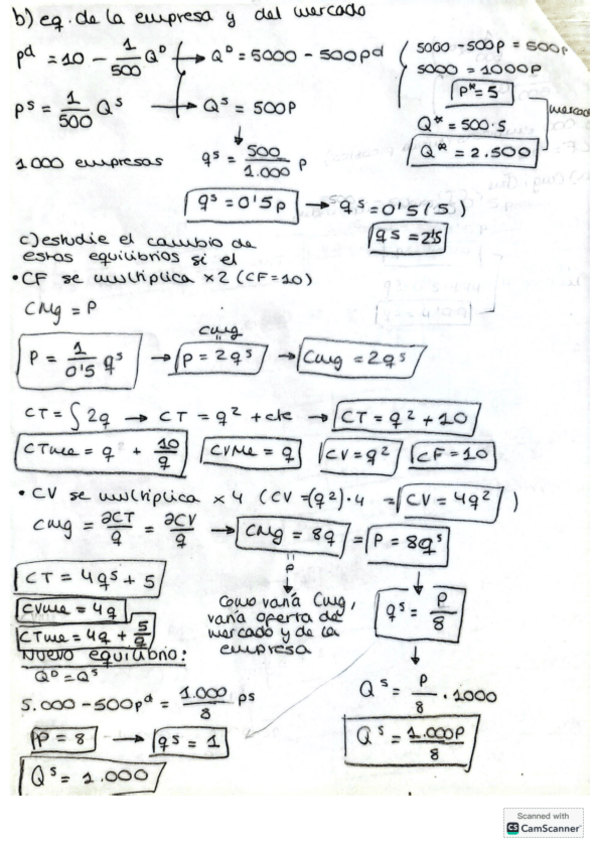 b) eq. de la empresa y del mercado
pd = 10 - 1/500 QD → QD = 5000 - 500pd
5000 - 500p = 500p
5000 = 1000p
ps = 1/500 Qs → Qs = 500p
p* = 5
mercado
Q* = 500·5
Q* = 2.500
1.000 empresas qs = 500/1.000 p
qs = 0'5p → qs = 0'5(5)
qs = 2'5
c) estudie el cambio de
estos equilibrios si el
• CF se multiplica x2 (CF=10)
CMg = P
P = 1/0'5 qs → P = 2qs → CMg = 2qs
CMg
"
CT = ∫2q → CT = q² + cte → CT = q² + 10
CTMe = q + 10/q CVMe = q CV = q² CF = 10
• CV se multiplica x 4 (CV = (q²)·4 = CV = 4q²)
CMg = ∂CT/q = ∂CV/q → CMg = 8q = P = 8qs
"
P
CT = 4qs + 5
CVMe = 4q
CTMe = 4q + 5/q
Como varía CMg,
varía oferta de
mercado y de la
empresa
qs = P/8
Nuevo equilibrio:
QD = Qs
5.000 - 500pd = 1.000/8 ps
P = 8 → qs = 1
Qs = 1.000
Qs = P/8 · 1000
Qs = 1.000P/8
Scanned with
CS CamScanner